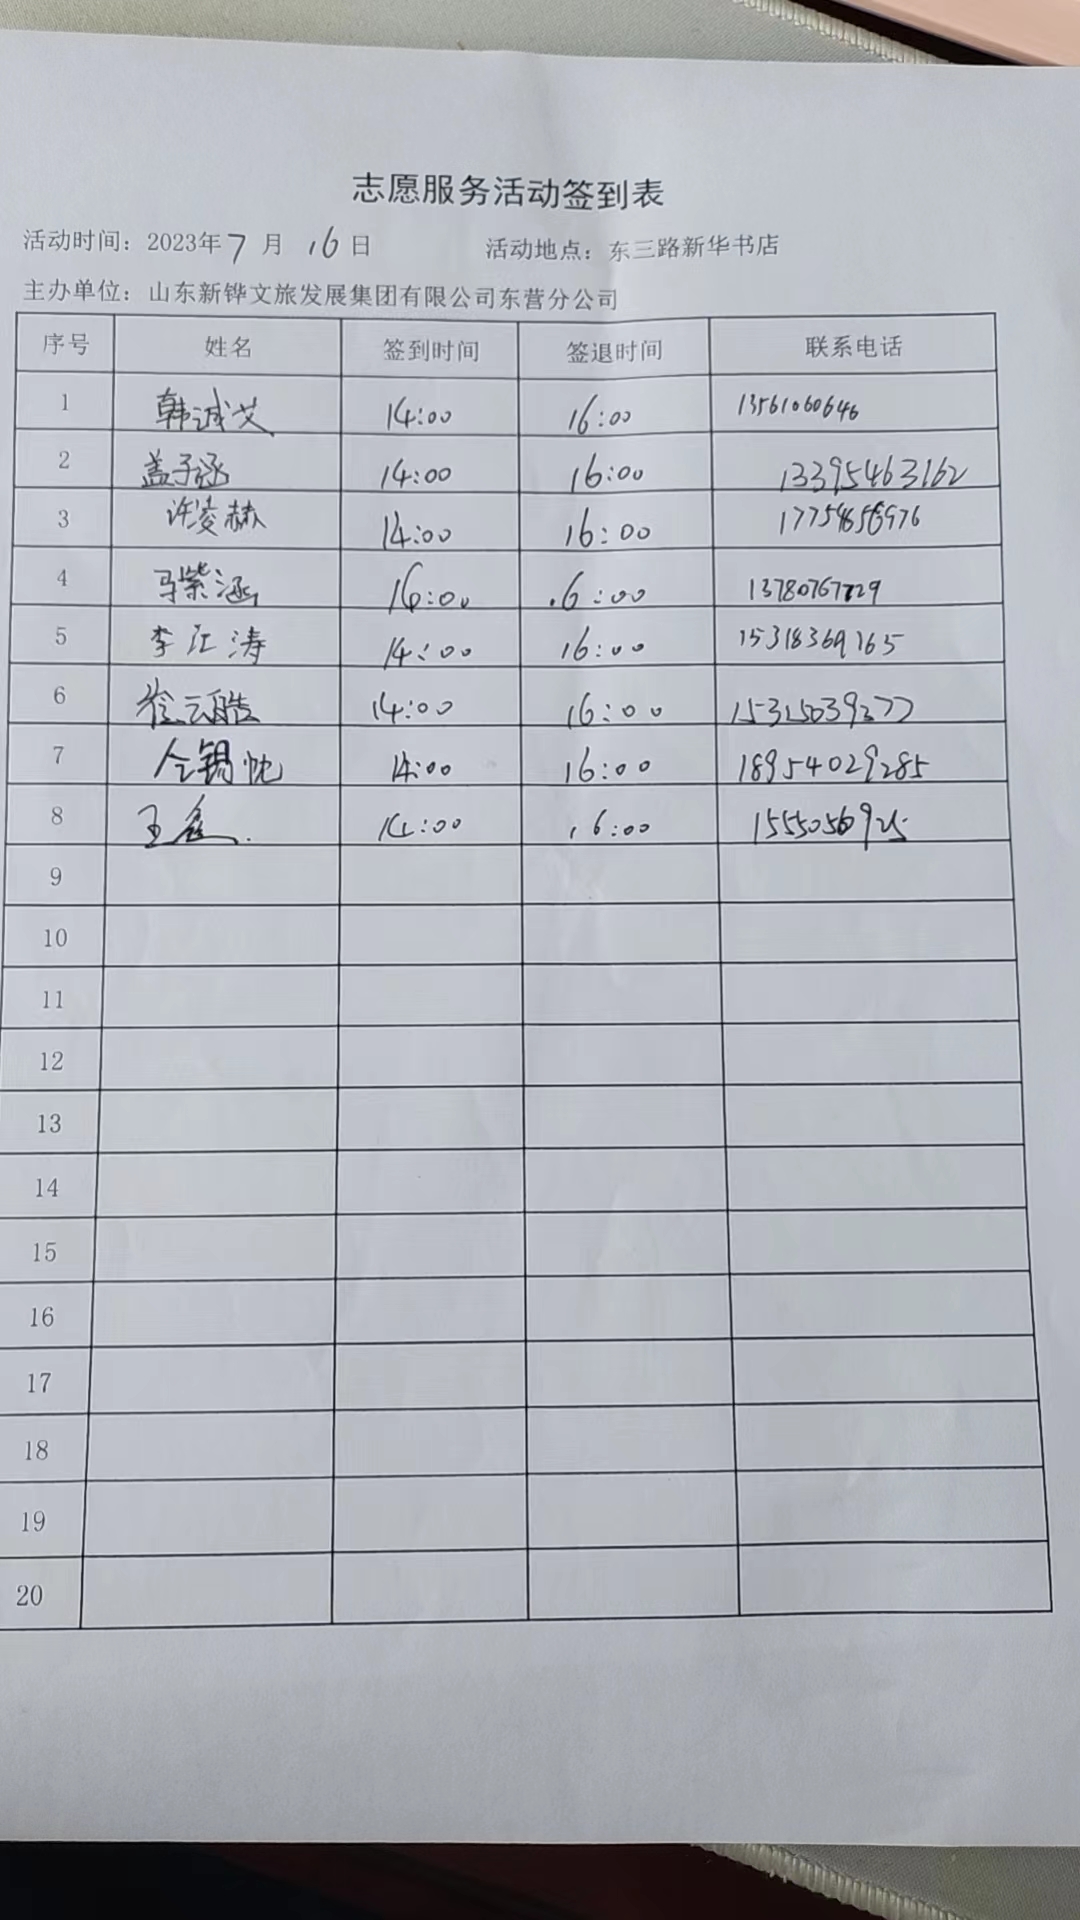 志愿服务活动签到表
活动时间：2023年7月16日 活动地点：东三路新华书店
主办单位：山东新铧文旅发展集团有限公司东营分公司
序号 姓名 签到时间 签退时间 联系电话
1 韩诚艾 14:00 16:00 13561060646
2 盖子涵 14:00 16:00 13395463162
3 许凌赫 14:00 16:00
4 马紫涵 16:00 16:00
5 李江涛 14:00 16:00 15318369765
6 徐云皓 14:00 16:00
7 仝锡忱 14:00 16:00 18954029285
8 王鑫 14:00 16:00
9
10
11
12
13
14
15
16
17
18
19
20